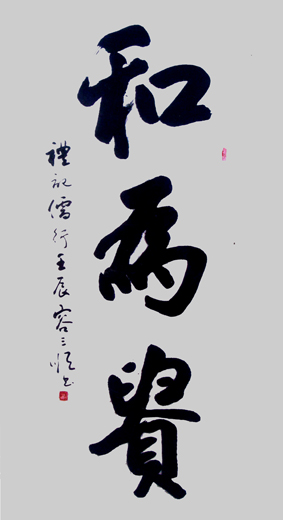 和為貴
禮記儒行壬辰容三順書